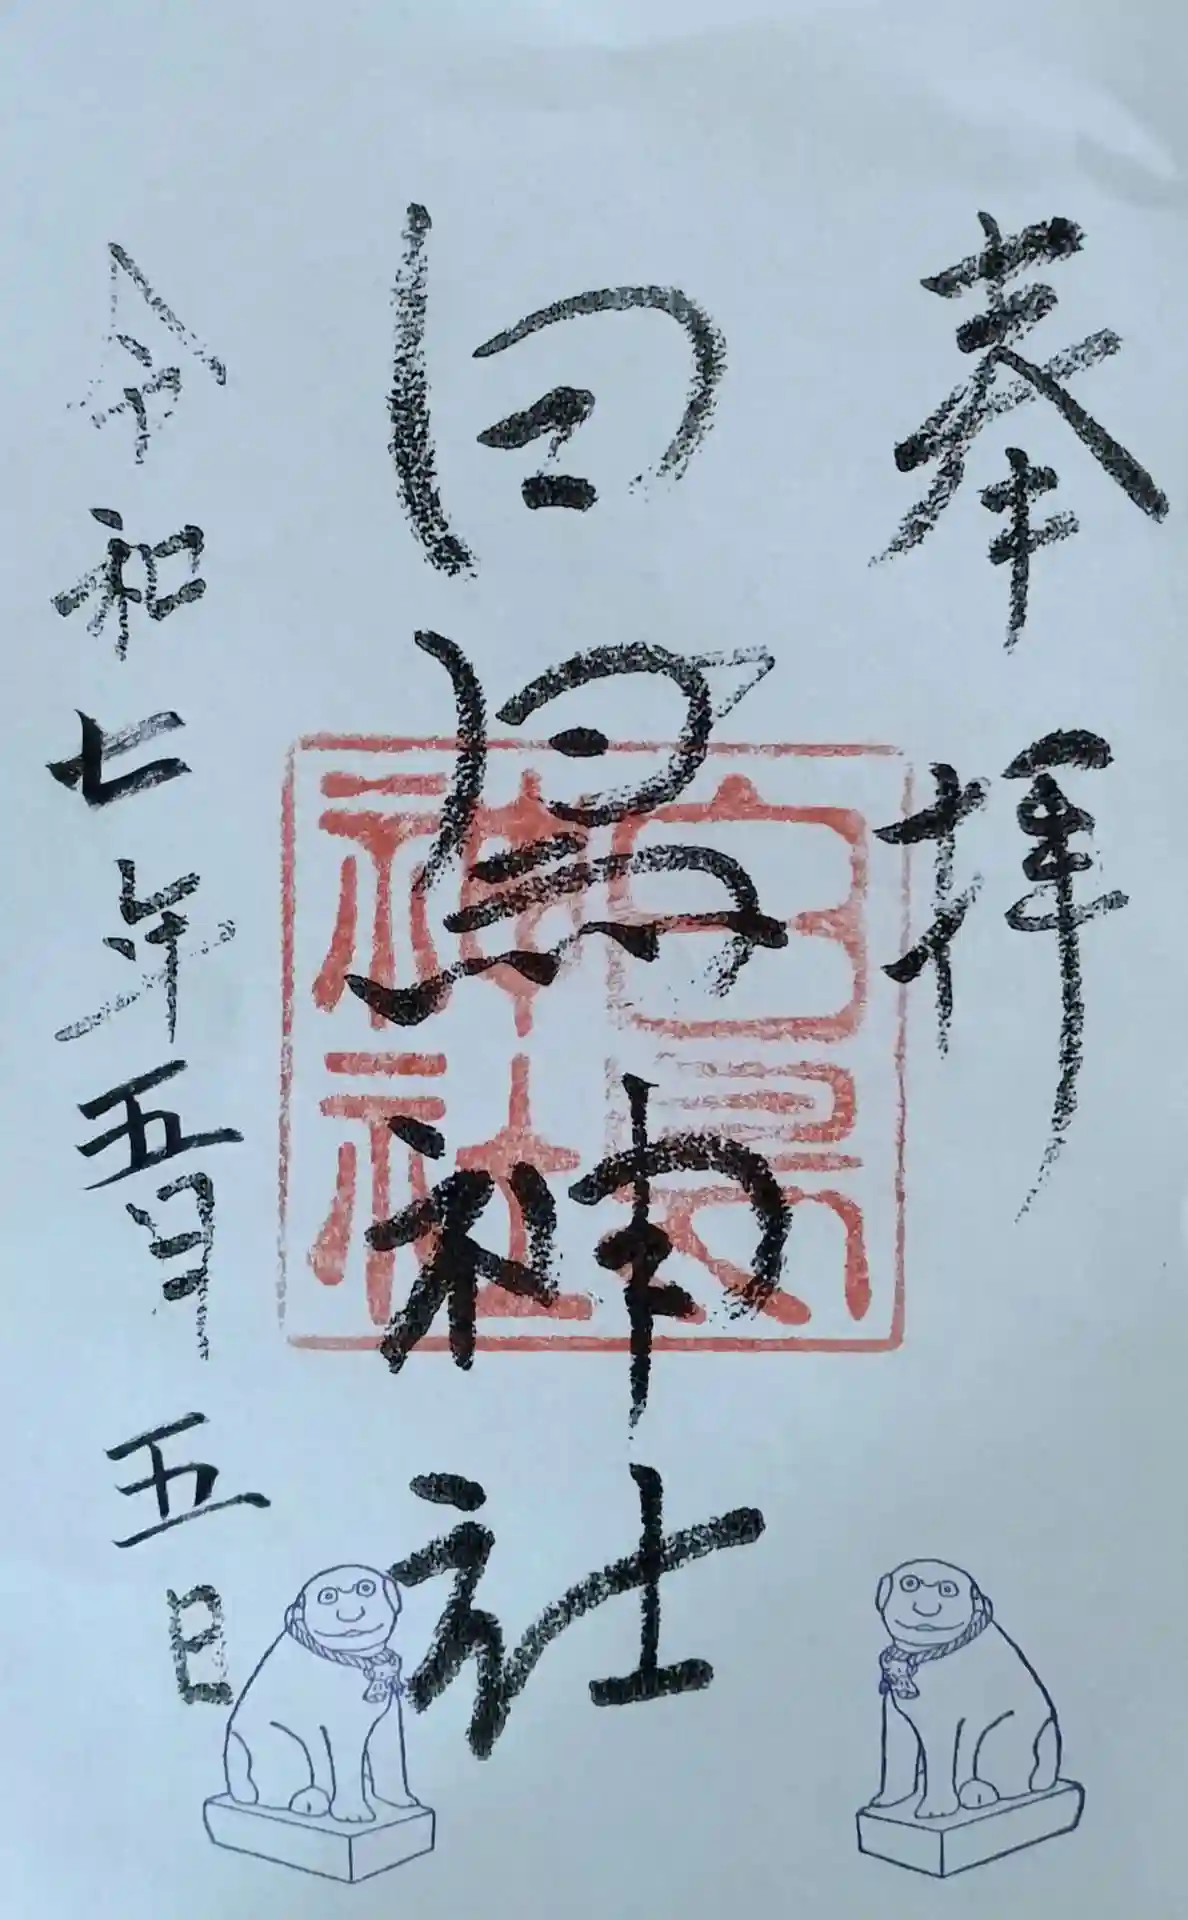 奉拝
白鳥神社
令和七年五月五日
白鳥神社